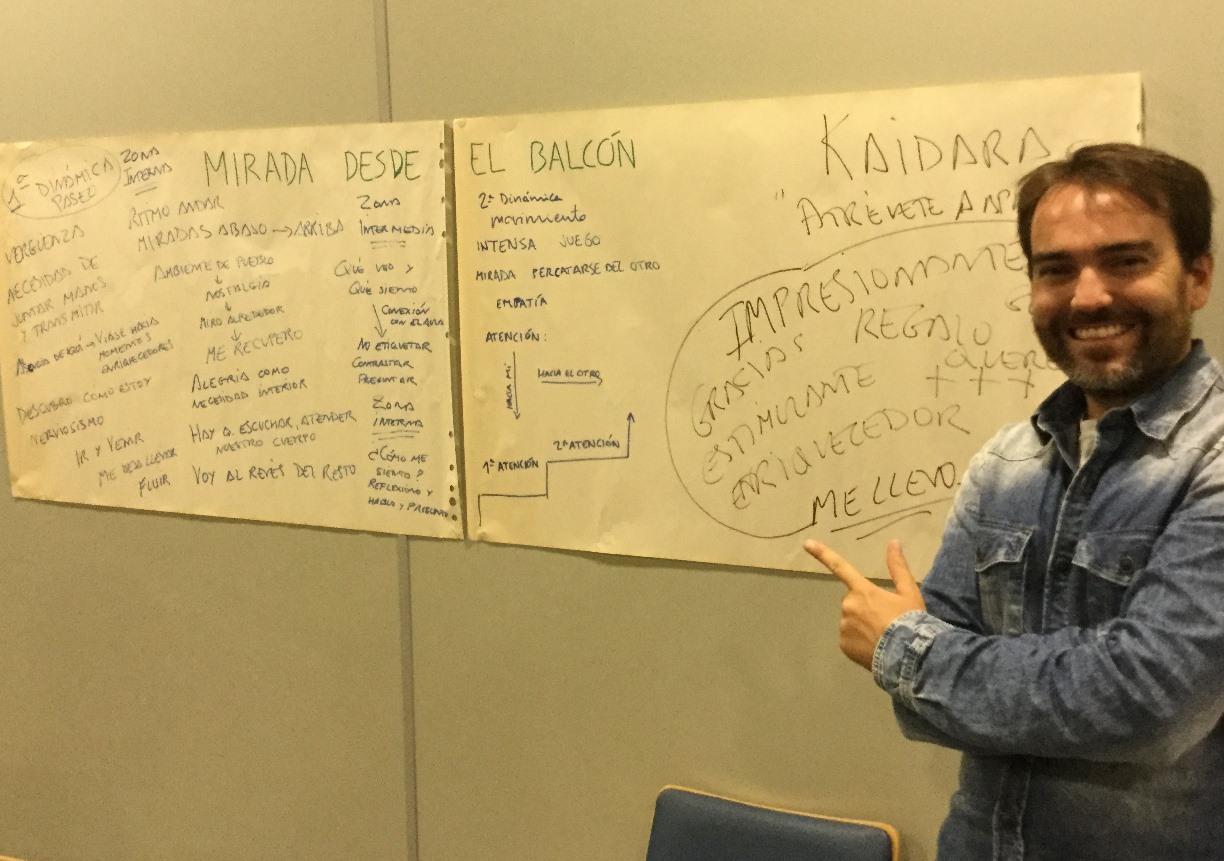 1ª DINÁMICA
PASEO
ZONA
INTERNA
MIRADA DESDE
VERGÜENZA
NECESIDAD DE
JUNTAR MANOS
Y TRANSMITIR
VIAJE HACIA
MOMENTOS
ENRIQUECEDORES
DESCUBRO COMO ESTOY
NERVIOSISMO
IR Y VENIR
ME DEJO LLEVAR
FLUIR
RITMO ANDAR
MIRADAS ABAJO → ARRIBA
AMBIENTE DE PUEBLO
NOSTALGIA
MIRO ALREDEDOR
ME RECUPERO
ALEGRÍA COMO
NECESIDAD INTERIOR
HAY Q. ESCUCHAR, ATENDER
NUESTRO CUERPO
VOY AL REVÉS DEL RESTO
ZONA
INTERMEDIA
QUÉ VEO Y
QUÉ SIENTO
CONEXIÓN
CON EL
NO ETIQUETAR
CONTRASTAR
PREGUNTAR
ZONA
INTERNA
¿CÓMO ME
SIENTO?
REFLEXIONO Y
HABLO Y PREGUNTO
EL BALCÓN
2ª Dinámica
movimiento
INTENSA JUEGO
MIRADA PERCATARSE DEL OTRO
EMPATÍA
ATENCIÓN:
HACIA MÍ
HACIA EL OTRO
1ª ATENCIÓN
2ª ATENCIÓN
KAIDARA
"ATRÉVETE A
IMPRESIONANTE
GRACIAS REGALO
ESTIMULANTE
+ + +
ENRIQUECEDOR
ME LLEVO